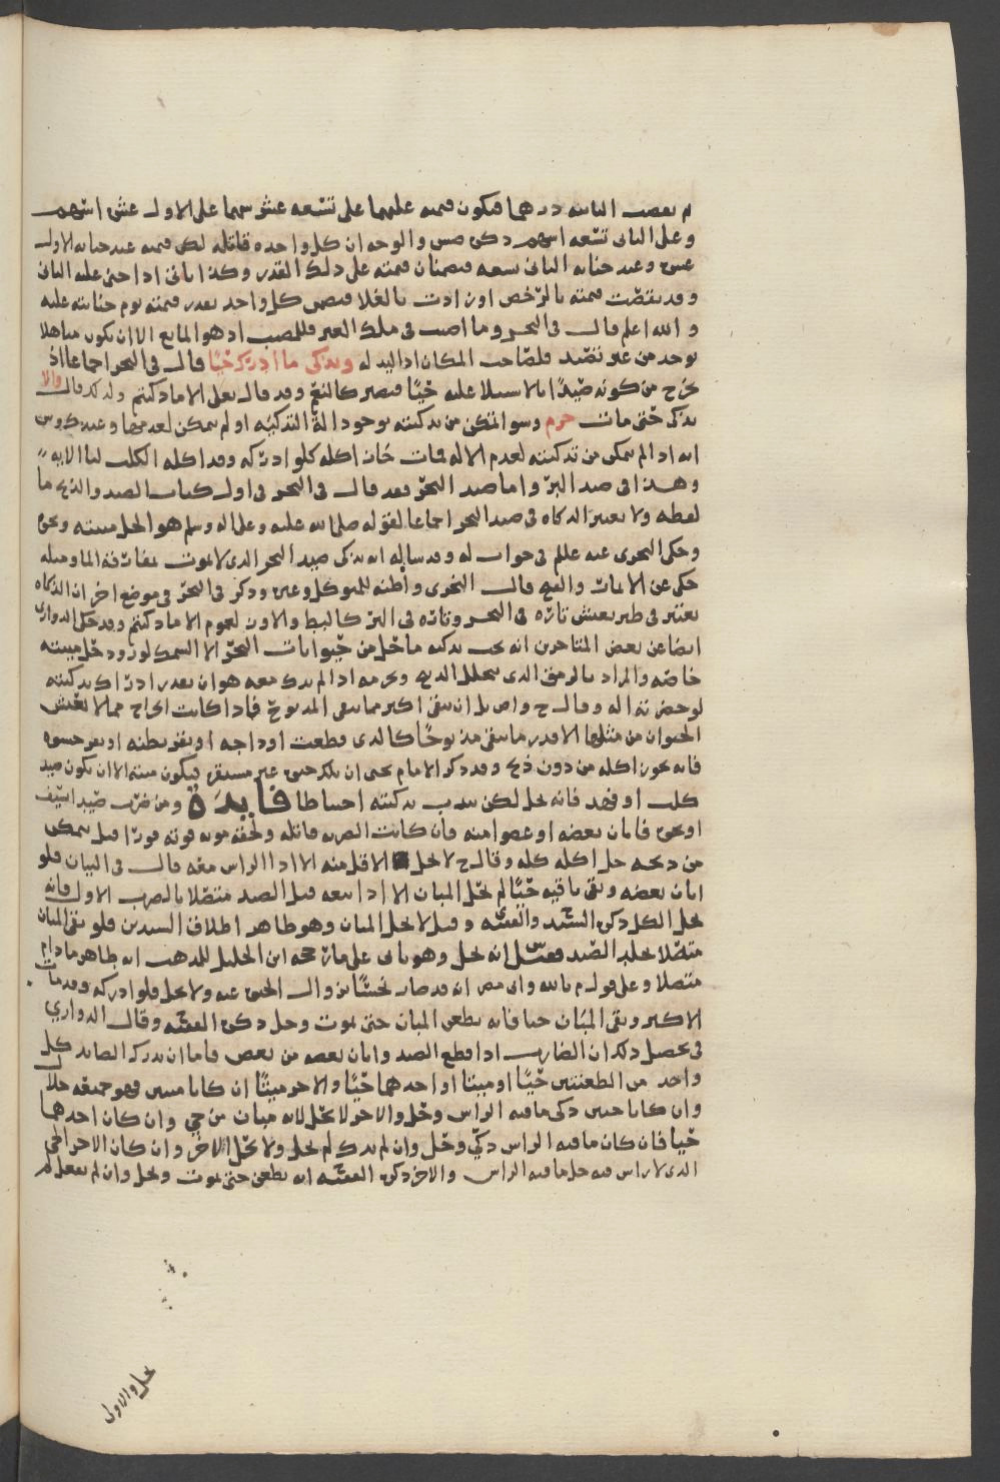 درهما فيكون قيمته عليهما على تسعه عشر سهما على الاول عشره اسهم
وعلى الثاني تسعه اسهم ذكره والوجه ان كل واحده قاتله لكن قيمته عند جنايه الاول
عشره وعند جنايه الثاني تسعه فيضمنان قيمته على ذلك القدر وكذا ياتي اذا جنى عليه الثاني
وقد نقصت قيمته بالرخص او زادت بالغلا فيضمن كل واحد بقدر قيمته يوم جنايته عليه
والله اعلم قال في البحر وما اصيب في ملك الغير فللمصيب اذ هو المانع الا ان يكون مما هلا
يوخذ من غير تصيد فلصاحب المكان اذ اليد له ويذكى ما ادرك حيا قال في البحر اجماعا اذ
خرج من كونه صيدا بالاستيلا عليه حيا فيصير كالنعم وقد قال تعلى الا ما ذكيتم ولذلك قال والا
يذكى حتى مات حرم وسوا تمكن من تذكيته بوجود الة التذكيه او لم يتمكن لعدمها وعند
انه اذا لم يمكن من تذكيته لعدم الاله فمات جاز اكله كلو ادركه وقد اكله الكلب لنا الايه
وهذا في صيد البر واما صيد البحر فقد قال في البحر في اول كتاب الصيد والذبح ما
لفظه ولا تعتبر الذكاه في صيد البحر اجماعا لقوله صلى الله عليه وعلى اله وسلم هو الحل ميتته ونحوه
وحكى النجري عنه عللم في جواب له وقد ساله انه يذكى صيد البحر الذي لا يموت بمفارقة الما ومثله
حكي عن الامات والفقيه قال النجري واظنه للمتوكل وغيره وذكر في البحر في موضع اخر ان الذكاه
تعتبر في طير يعيش تارة في البحر وتارة في البر كالبط والاوز لعموم الا ما ذكيتم وقد حكى الدواري
ايضا عن بعض المتاخرين انه يجب تذكيه ما حل من حيوانات البحر الا السمك لورود حل ميتته
خاصه والمراد بالرمق الذي يحلل الذبح ويحرمه اذا لم يدرك معه هو ان يقدر ادراك تذكيته
لو حضرته اله وقال ح واص بل ان يبقى اكثر مما يبقى المذبوح فاذا كانت الجراح مما لا يعيش
الحيوان من مثلها الا قدر ما يبقى مذبوحا كالذي قطعت اوداجه او بقر بطنه او نثر حشوه
فانه يجوز اكله من دون ذبح وقد ذكر الامام يحيى ان تلك حيوه غير مستقره فيكون ميته الا ان يكون صيد
كلب او فهد فانه يحل لكن يندب تذكيته احتياطا فايدة ومن ضرب صيدا بسيف
او نحوه فابان بعضه او عضوا منه فان كانت الضربه قاتله ولحقه موته فورا قبل يتمكن
من ذبحه حل اكله كله وقال ح لا يحل الاقل منه الا اذا الراس معه قال في البيان فلو
ابان بعضه وبقي باقيه حيا لم يحل المبان الا اذا تبعه قبل الصيد متصلا بالضرب الاول فانه
يحل الكل ذكره السيد والفقيه وقيل لا يحل المبان وهو ظاهر اطلاق السيدين فلو بقي المبان
متصلا بجلد الصيد فقيل انه يحل وهو ياتي على ما رجحه ابن الخليل للمذهب انه طاهر ما دام
متصلا وعلى قول م بالله وابي مضر انه قد صار نجسا بزوال الحيوه عنه ولا يحل فلو ادركه وقد مات
الاكثر وبقي المبان حيا فانه يطعن المبان حتى يموت وحل ذكره الفقيه وقال الدواري
في تحصيل ذلك ان الضارب اذا قطع الصيد وابان بعضه من بعض فاما ان يدركه الصايد كل
واحد من القطعتين حيا او ميتا او احدهما حيا والاخر ميتا ان كانا ميتين فهو جميعه حلال
وان كانا حيين ذكى ما فيه الراس وحل والاخر لا يحل لانه مبان من حي وان كان احدهما
حيا فان كان ما فيه الراس ذكي وحل وان لم يدرك لم يحل ولا يحل الاخر وان كان الاخر الحي
الذي لا راس فيه حل ما فيه الراس والاخر ذكره الفقيه انه يطعن حتى يموت ويحل وان لم يفعل لم
يحل والاول